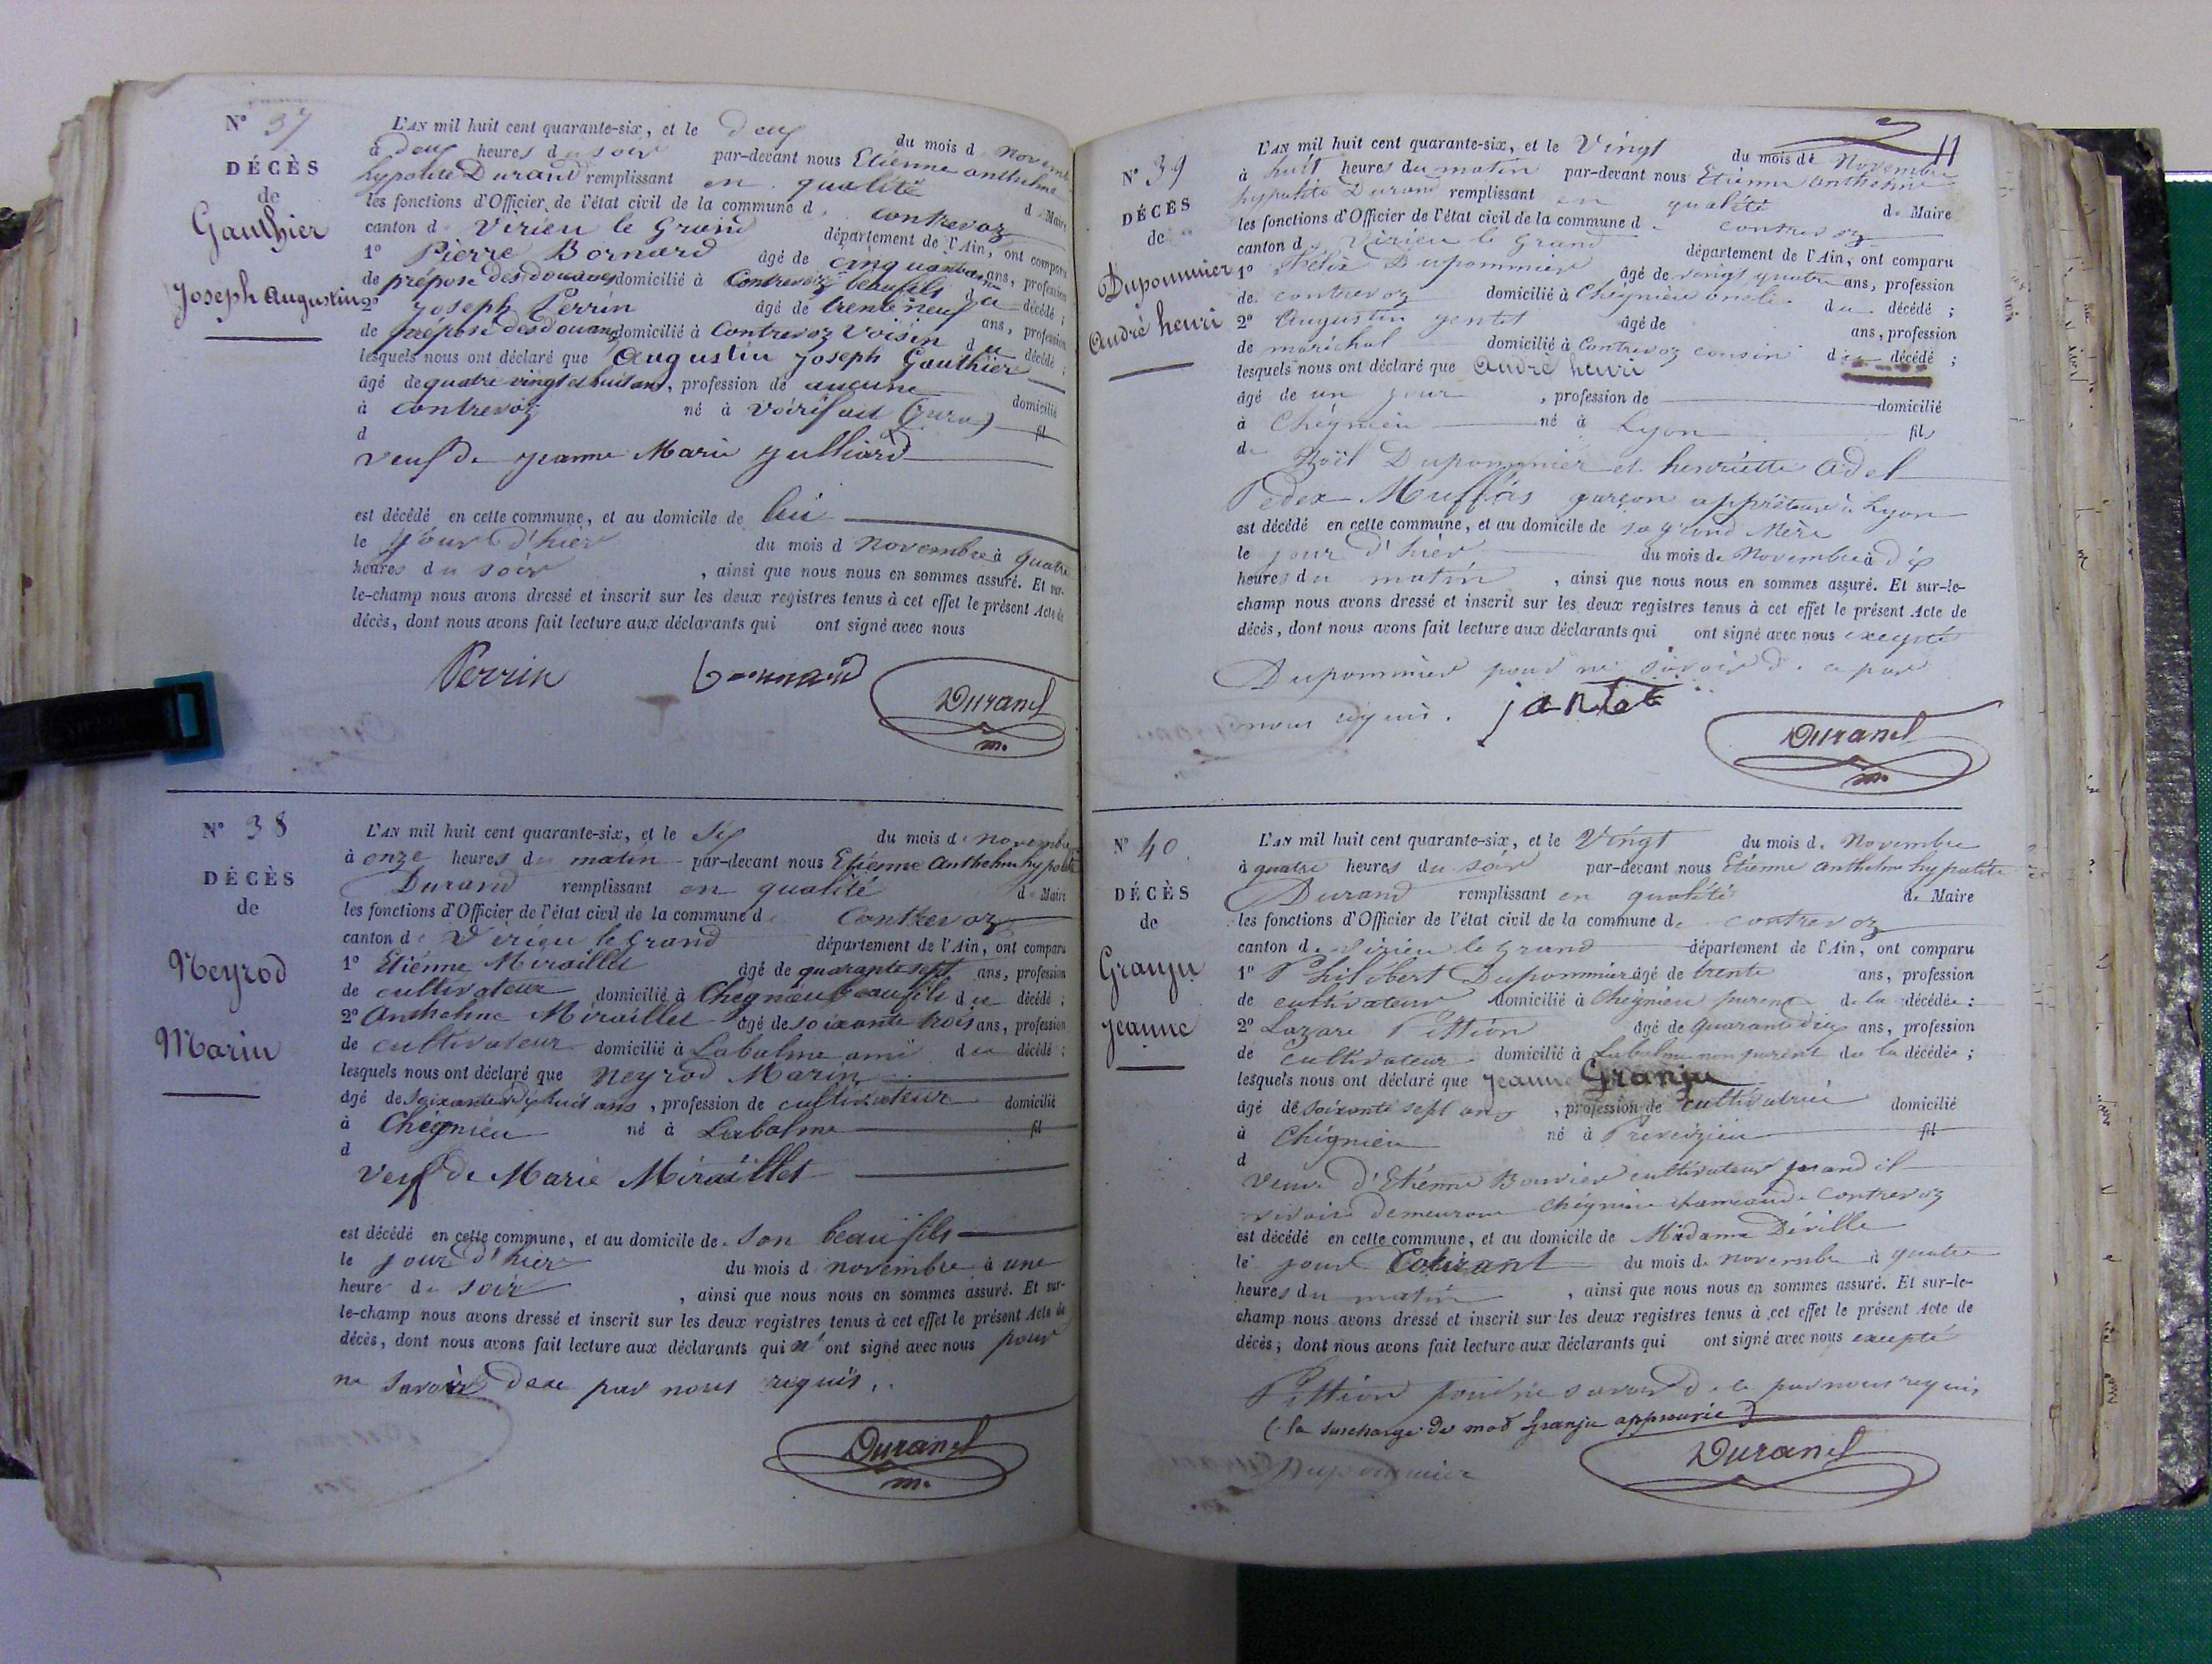 N° 37
DÉCÈS
de
Gauthier
Joseph Augustin
L'AN mil huit cent quarante-six, et le deux du mois de Novembre
à deux heures du soir par-devant nous Etienne anthelme
hypolite Durand remplissant en qualité de Maire
les fonctions d'Officier de l'état civil de la commune de contrevoz
canton de Virieu le Grand département de l'Ain, ont comparu
1° Pierre Bornard âgé de cinquante ans, profession
de préposé des douanes domicilié à Contrevoz beaufils du décédé ;
2° Joseph Perrin âgé de trente neuf ans, profession
de préposé des douanes domicilié à Contrevoz Voisin du décédé ;
lesquels nous ont déclaré que Augustin Joseph Gauthier
âgé de quatre vingt et huit ans, profession de aucune domicilié
à contrevoz né à (jura) fil
d
veuf de jeanne Marie julliard
est décédé en cette commune, et au domicile de lui
le jour d'hier du mois d Novembre à quatre
heures du soir , ainsi que nous nous en sommes assuré. Et sur-
le-champ nous avons dressé et inscrit sur les deux registres tenus à cet effet le présent Acte de
décès, dont nous avons fait lecture aux déclarants qui ont signé avec nous
Perrin bornard
Durand
m.
N° 38
DÉCÈS
de
Neyrod
Marin
L'AN mil huit cent quarante-six, et le six du mois de novembre
à onze heures du matin par-devant nous Etienne Anthelme hypolite
Durand remplissant en qualité de Maire
les fonctions d'Officier de l'état civil de la commune de Contrevoz
canton de Virieu le Grand département de l'Ain, ont comparu
1° Etienne Miraillet âgé de quarante sept ans, profession
de cultivateur domicilié à Chégnieu beaufils du décédé ;
2° Anthelme Miraillet âgé de soixante trois ans, profession
de cultivateur domicilié à Labalme ami du décédé ;
lesquels nous ont déclaré que Neyrod Marin
âgé de soixante dix huit ans , profession de cultivateur domicilié
à Chégnieu né à Labalme fil
d
veuf de Marie Miraillet
est décédé en cette commune, et au domicile de son beaufils
le jour d'hier du mois d novembre à une
heure du soir , ainsi que nous nous en sommes assuré. Et sur-
le-champ nous avons dressé et inscrit sur les deux registres tenus à cet effet le présent Acte de
décès, dont nous avons fait lecture aux déclarants qui n' ont signé avec nous pour
ne savoir de ce par nous requis.
Durand
m.
11
N° 39
DÉCÈS
de
Dupommier
André henri
L'AN mil huit cent quarante-six, et le Vingt du mois de Novembre
à huit heures du matin par-devant nous Etienne Anthelme
hypolite Durand remplissant en qualité de Maire
les fonctions d'Officier de l'état civil de la commune de contrevoz
canton de Virieu le Grand département de l'Ain, ont comparu
1° Félix Dupommier âgé de vingt quatre ans, profession
de contrevoz domicilié à Chégnieu oncle du décédé ;
2° Augustin gentet âgé de ans, profession
de maréchal domicilié à Contrevoz cousin du décédé ;
lesquels nous ont déclaré que André henri
âgé de un jour , profession de domicilié
à Chégnieu né à Lyon fils
de Noël Dupommier et henriette Adel
garçon appréteur à Lyon
est décédé en cette commune, et au domicile de sa grand Mère
le jour d'hier du mois de Novembre à dix
heures du matin , ainsi que nous nous en sommes assuré. Et sur-le-
champ nous avons dressé et inscrit sur les deux registres tenus à cet effet le présent Acte de
décès, dont nous avons fait lecture aux déclarants qui ont signé avec nous excepté
Dupommier pour ne savoir de ce par
nous requis. jantet
Durand
m.
N° 40
DÉCÈS
de
Granju
jeanne
L'AN mil huit cent quarante-six, et le Vingt du mois de Novembre
à quatre heures du soir par-devant nous Etienne anthelme hypolite
Durand remplissant en qualité de Maire
les fonctions d'Officier de l'état civil de la commune de contrevoz
canton de Virieu le Grand département de l'Ain, ont comparu
1° Philibert Dupommier âgé de trente ans, profession
de cultivateur domicilié à Chégnieu parent de la décédée ;
2° Lazare Pittion âgé de quarante dix ans, profession
de cultivateur domicilié à Labalme non parent de la décédée ;
lesquels nous ont déclaré que jeanne Granju
âgé de soixante sept ans , profession de cultivatrice domicilié
à Chégnieu né à fil
d
veuve d'Etienne Bouvier cultivateur quand il
vivait demeurant Chégnieu hameau de Contrevoz
est décédé en cette commune, et au domicile de Madame Déville
le jour Courant du mois de novembre à quatre
heures du matin , ainsi que nous nous en sommes assuré. Et sur-le-
champ nous avons dressé et inscrit sur les deux registres tenus à cet effet le présent Acte de
décès ; dont nous avons fait lecture aux déclarants qui ont signé avec nous excepté
Pittion pour ne savoir de ce par nous requis
(la surcharge du mot Granju approuvée)
Dupommier Durand